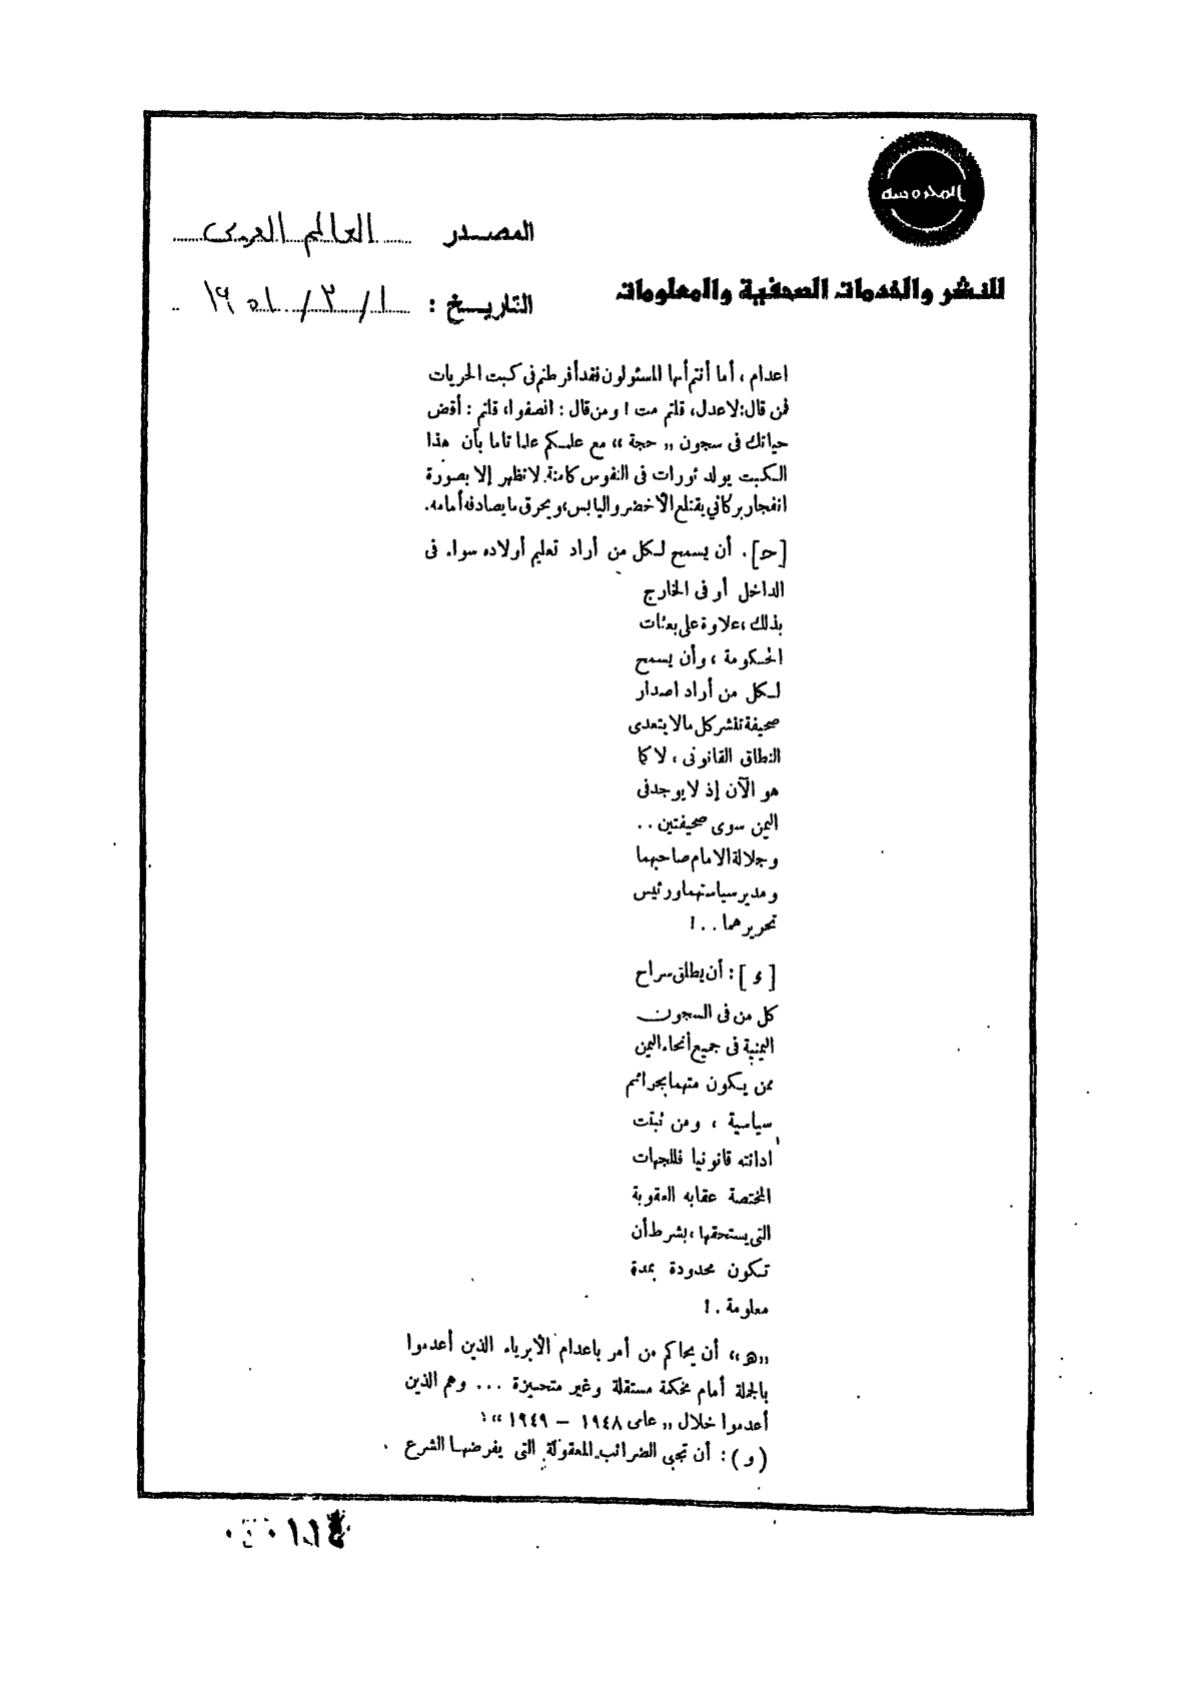 المحروسة
للنشر والخدمات الصحفية والمعلومات
المصدر العالم العربى
التاريخ : ١ / ٣ / ١٩٥١
اعدام ، أما أنتم أيها المسئولون فقد أفرطتم فى كبت الحريات
فمن قال: لاعدل، قلتم مت ! ومن قال : انصفوا، قلتم : أقض
حياتك فى سجون „ حجة “ مع علمكم علما تاما بأن هذا
الكبت يولد ثورات فى النفوس كامنة. لا تظهر إلا بصورة
انفجار بركاني يقتلع الأخضر واليابس، ويحرق ما يصادفه أمامه.
[حـ] . أن يسمح لكل من أراد تعليم أولاده سواء فى
الداخل أو فى الخارج
بذلك ،علاوة على بعثات
الحكومة ، وأن يسمح
لكل من أراد اصدار
صحيفة تنشر كل مالا يتعدى
النطاق القانونى ، لا كما
هو الآن إذ لا يوجد فى
اليمن سوى صحيفتين ..
وجلالة الامام صاحبهما
ومدير سياستهما ورئيس
تحريرهما . . !
[ و ] : أن يطلق سراح
كل من فى السجون
اليمنية فى جميع أنحاء اليمن
ممن يكون متهما بجرائم
سياسية ، ومن ثبتت
ادانته قانونيا فللجهات
المختصة عقابه العقوبة
التى يستحقها ، بشرط أن
تكون محدودة بمدة
معلومة . !
„هـ“ أن يحاكم من أمر باعدام الأبرياء الذين أعدموا
بالجملة أمام محكمة مستقلة وغير متحيزة ... وهم الذين
أعدموا خلال „ عامى ١٩٤٨ – ١٩٤٩ “ !
(و) : أن تجبى الضرائب المعقولة التى يفرضها الشرع .